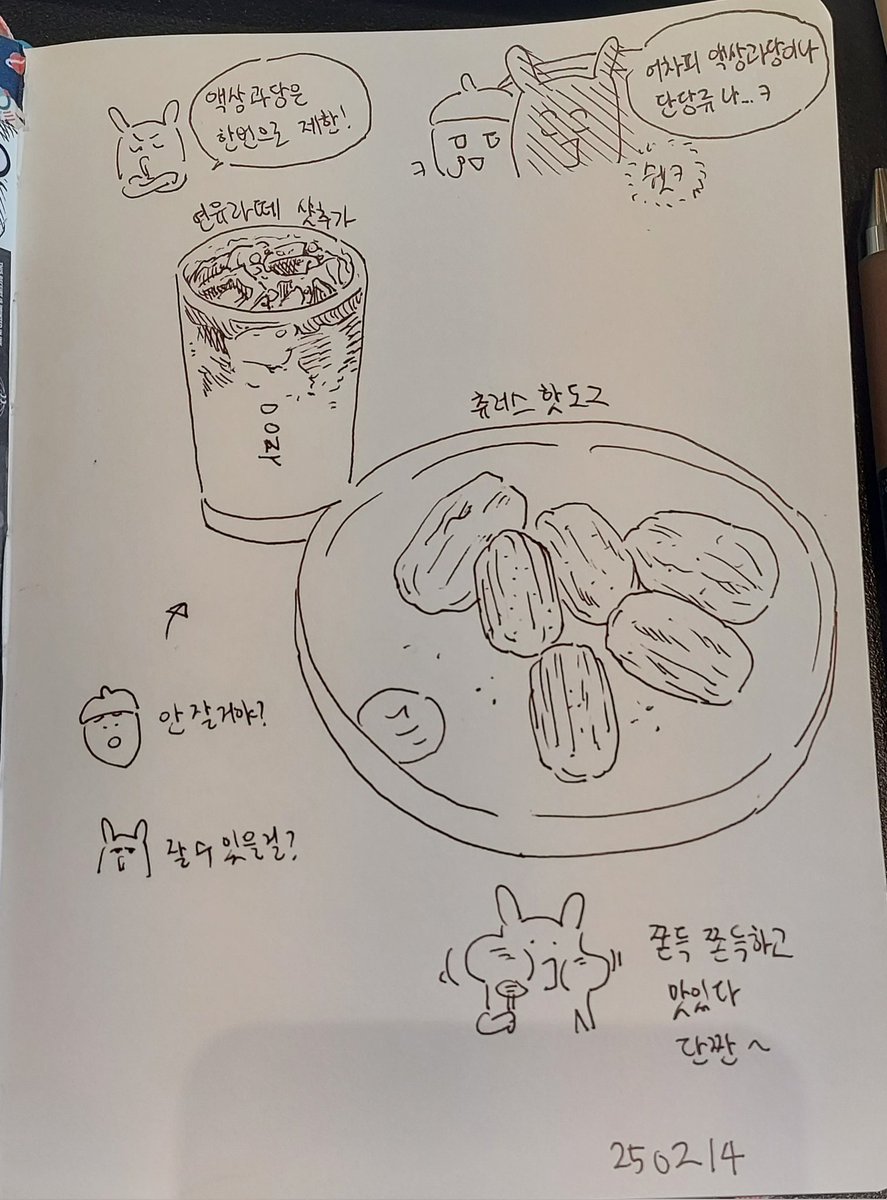 액상과당은
한번으로 제한!
어차피 액상과당이나
단당류나...ㅋ
ㅋ
쉿ㅋ
연유라떼 샷추가
DOZY
츄러스핫도그
안 잘거야?
잘 수 있을걸?
쫀득 쫀득하고
맛있다
단짠~
250214